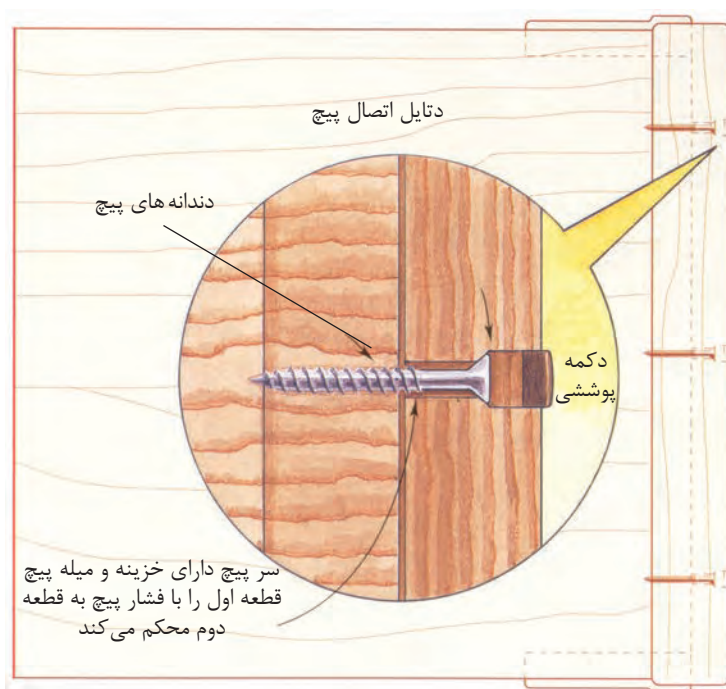 دتایل اتصال پیچ
دندانه های پیچ
دکمه
پوششی
سر پیچ دارای خزینه و میله پیچ
قطعه اول را با فشار پیچ به قطعه
دوم محکم می‌کند